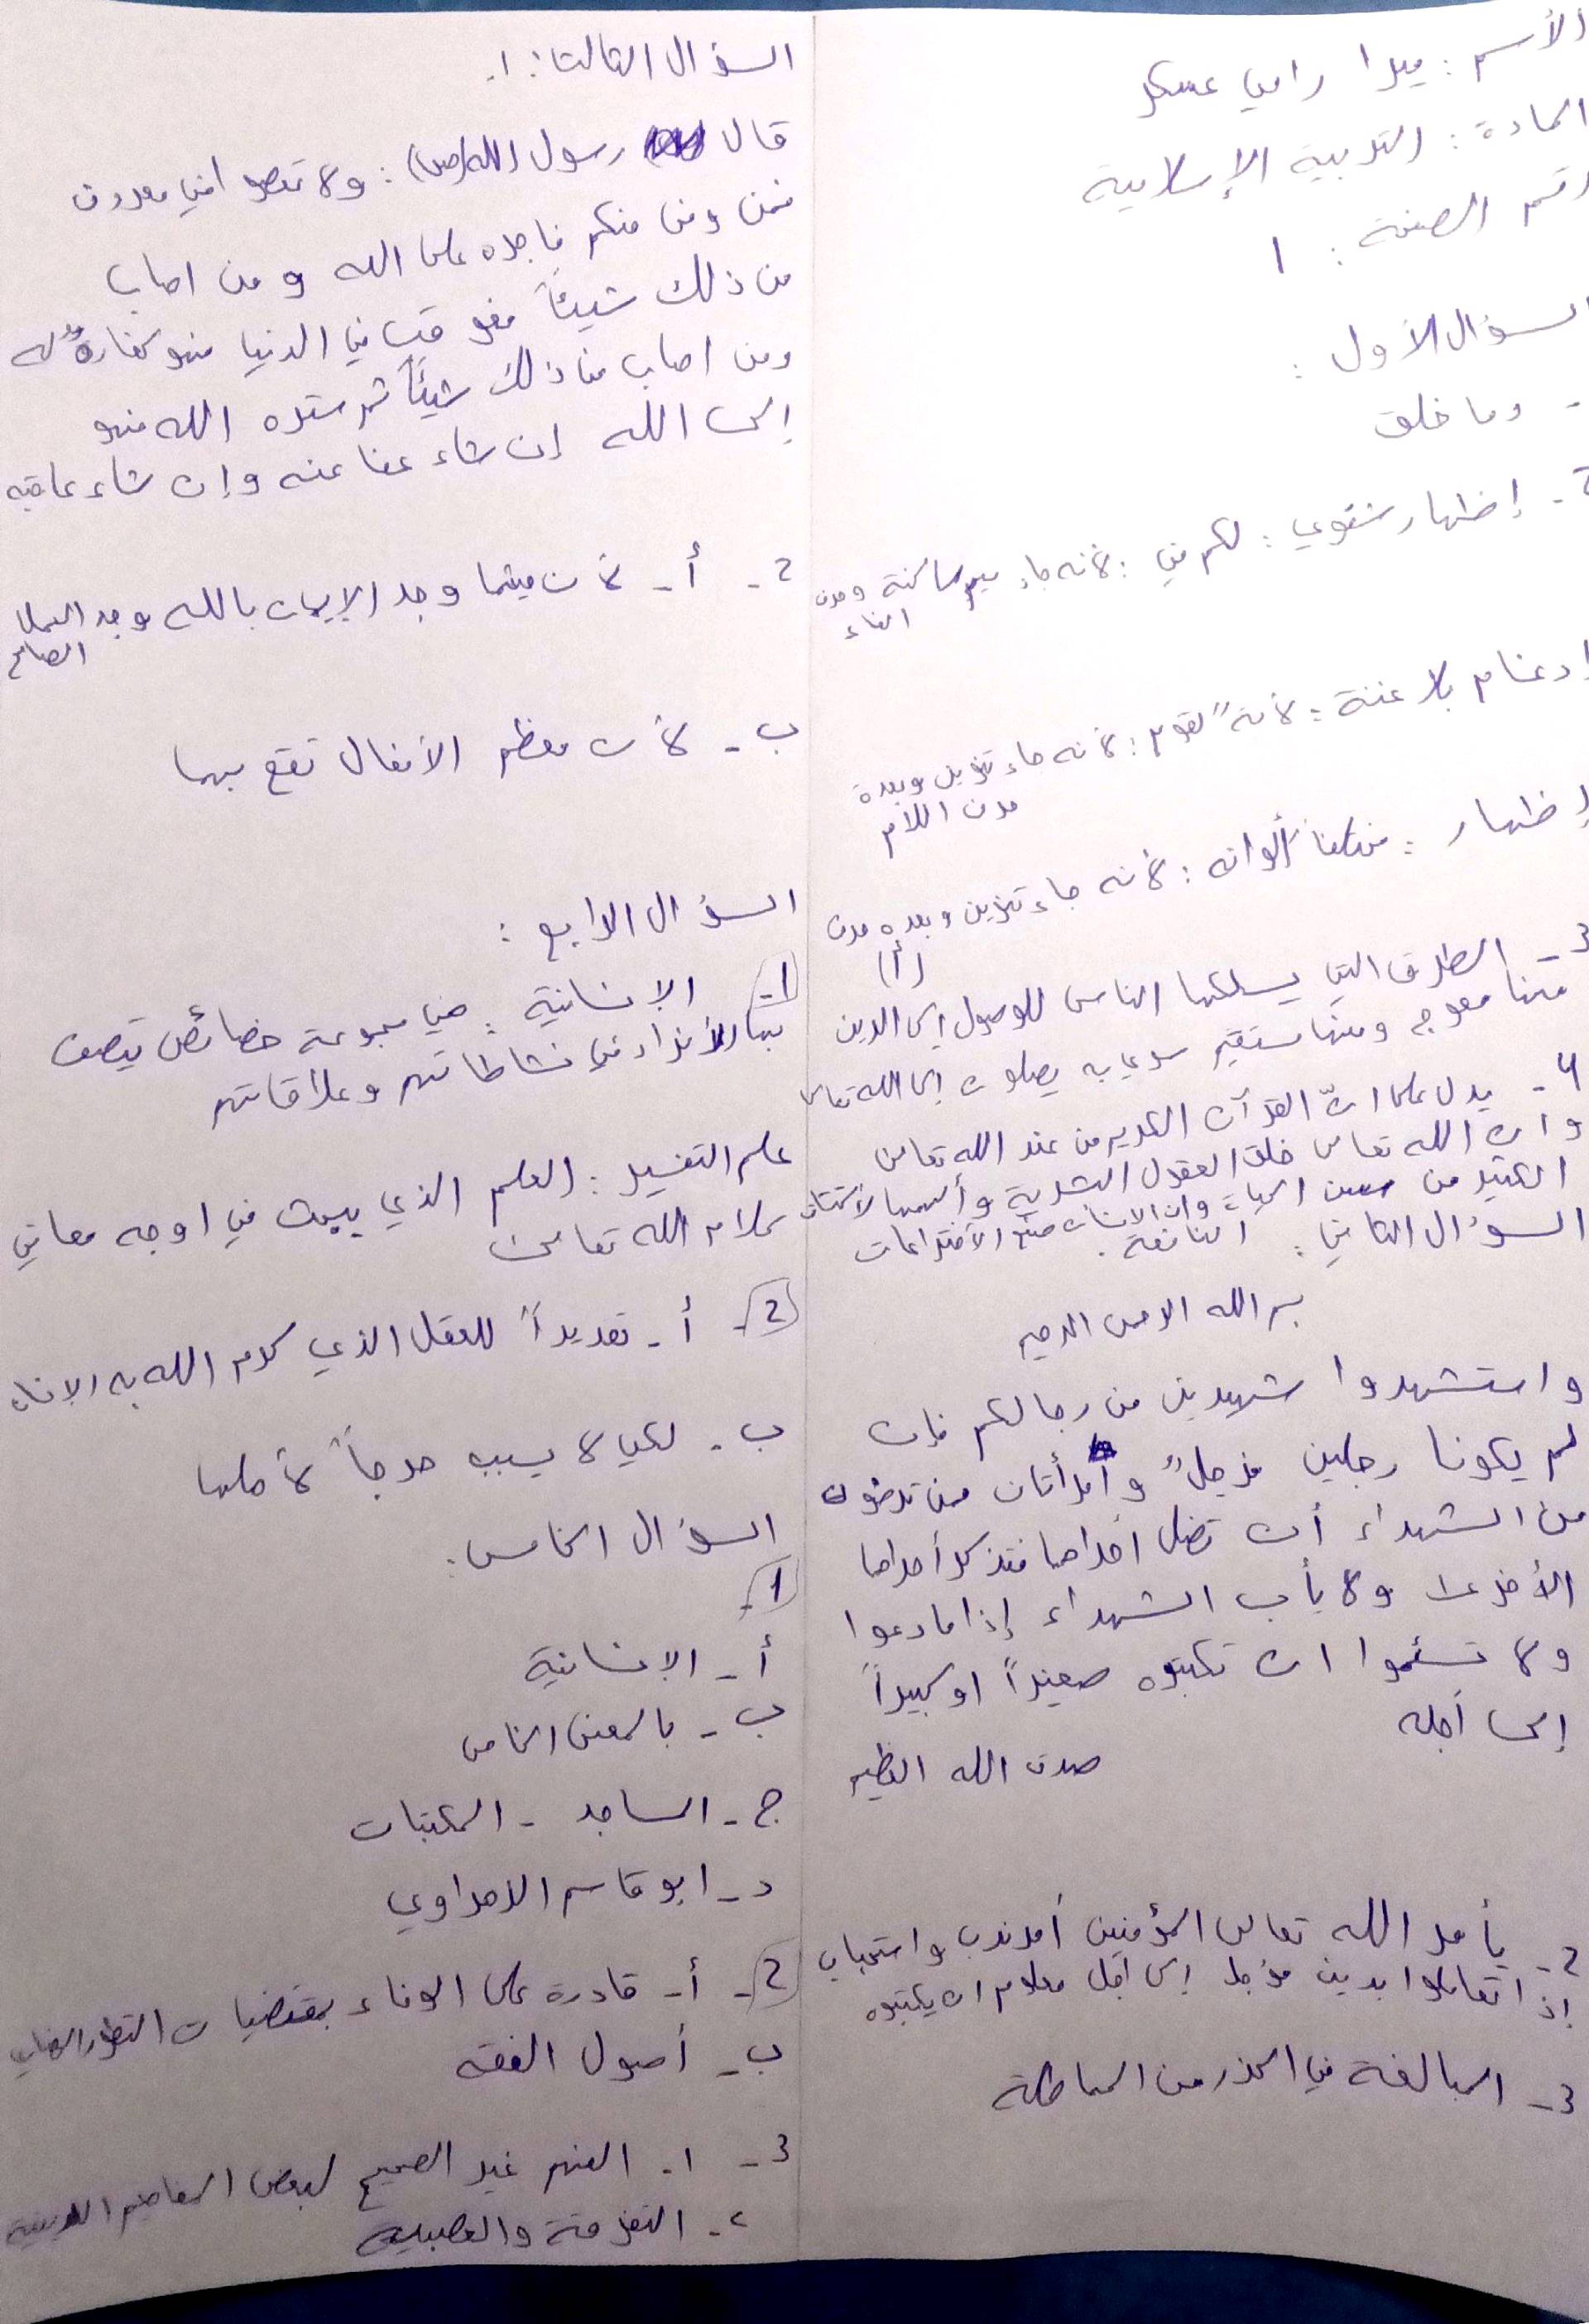 الأسم : ميرا رامي عسكر
المادة : التربية الإسلامية
رقم الصفحة : ١
السؤال الأول :
- وما خلق
2- إظهار شفوي : لكم في : لأنه جاء ميم ساكنة وحرف
الفاء
إدغام بلا غنة : لأيةً لقوم : لأنه جاء تنوين وبعده
حرف اللام
إظهار : مختلفاً ألوانه : لأنه جاء تنوين وبعده حرف
(أ)
3- الطرق التي يسلكها الناس للوصول إلى الدين
منها معوج ومنها مستقيم سوي به يصلون إلى الله تعالى
4- يدل على انّ القرآن الكريم من عند الله تعالى
وان الله تعالى خلق العقول البشرية وألهمها لأكتشاف
الكثير من سنن الحياة وان الانسان الأختراعات
النافعة .
السؤال الثاني :
بسم الله الرحمن الرحيم
واستشهدوا شهيدين من رجالكم فإن
لم يكونا رجلين فرجلٌ وامرأتان ممن ترضون
من الشهداء أن تضل احداهما فتذكر أحداهما
الأخرى ولا يأب الشهداء إذا ما دعوا
ولا تسئموا ان تكتبوه صغيراً او كبيراً
إلى أجله
صدق الله العظيم
2- يأمر الله تعالى المؤمنين أمر ندب واستحباب
إذا تعاملوا بدين مؤجل إلى اجل معلوم ان يكتبوه
3- المبالغة في الحذر من المماطلة
السؤال الثالث : ١.
قال رسول الله (ص) : ولا تعصوا في معروف
فمن وفى منكم فأجره على الله ومن اصاب
من ذلك شيئاً فعوقب في الدنيا فهو كفارةٌ له
ومن اصاب من ذلك شيئاً ثم ستره الله فهو
إلى الله إن شاء عفا عنه وإن شاء عاقبه
2- أ- لأن حيثما وجد الإيمان بالله وجد العمل
الصالح
ب- لأن معظم الأفعال تقع بهما
السؤال الرابع :
1- الإنسانية : هي مجموعة خصائص تتصف
بها الأفراد في نشاطاتهم وعلاقاتهم
علم التفسير : العلم الذي يبحث في اوجه معاني
كلام الله تعالى
2- أ- تقديراً للعقل الذي كرم الله به الانسان
ب- لكي لا يسبب حرجاً لأهلها
السؤال الخامس :
1-
أ- الإنسانية
ب- بالمعنى الخاص
ج- المساجد - المكتبات
د- ابو قاسم الزهراوي
2- أ- قادرة على الوفاء بمقتضيات التطور
ب- أصول الفقه
3- ١. الفهم غير الصحيح لبعض المفاهيم الدينية
٢- التفرقة والعصبية